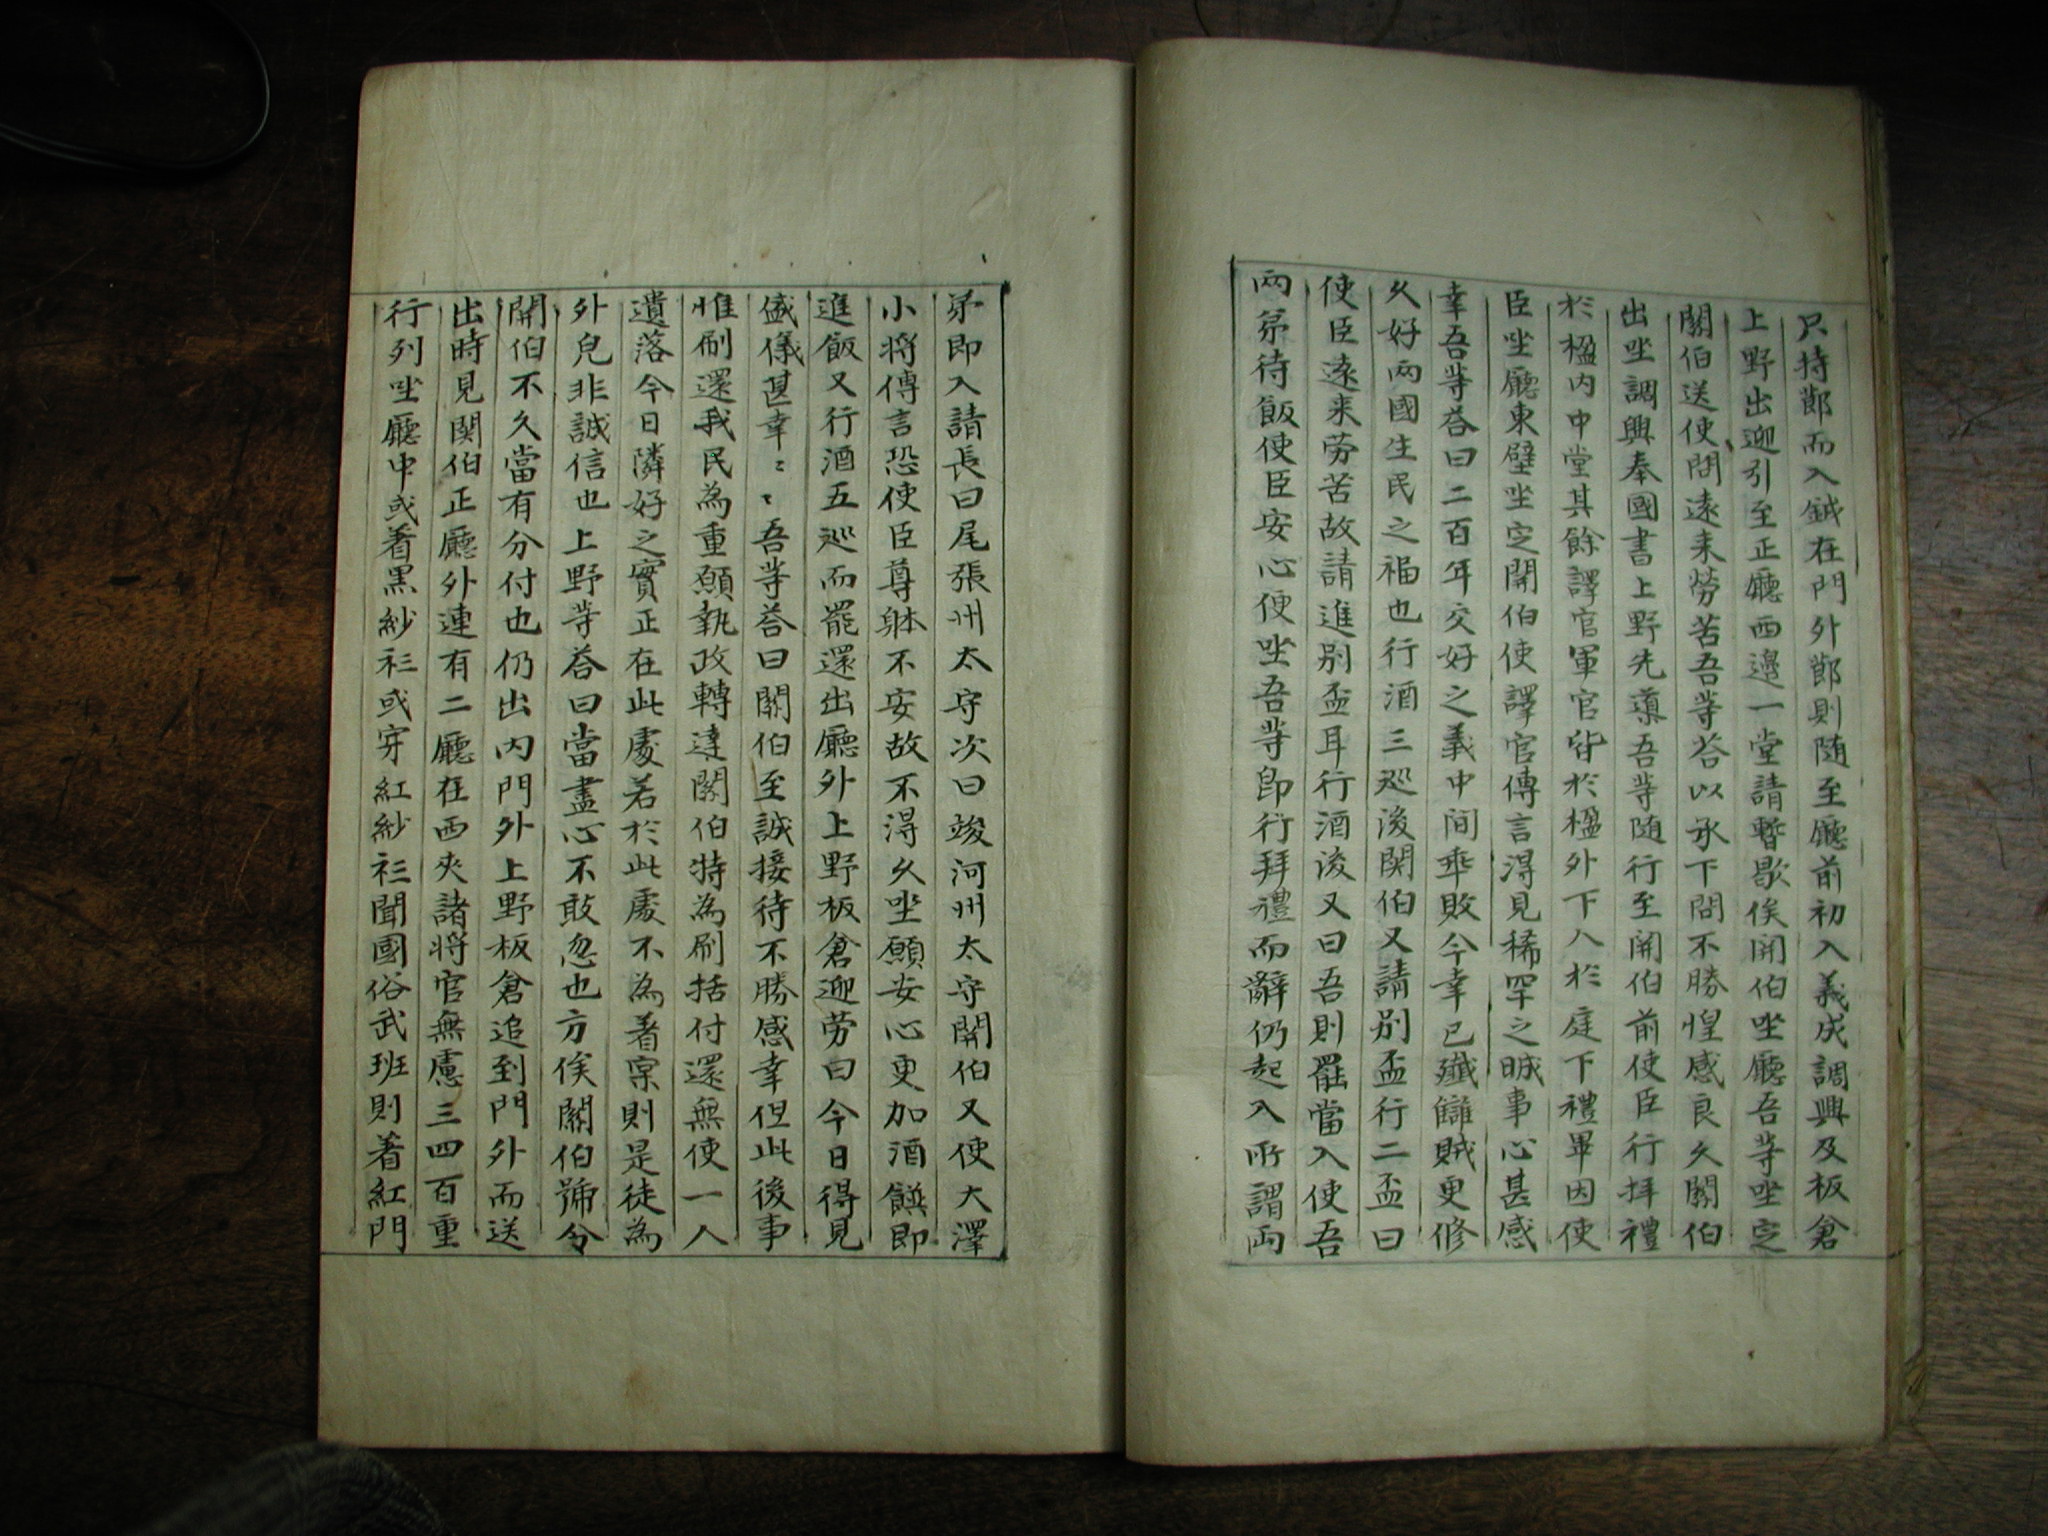 只持鄭而入鉞在門外鄭則随至廳前初入義成調興及板倉
上野出迎引至正廳西邊一堂請暫歇俟関伯坐廳吾等坐定
關伯送使問遠来勞苦吾等荅以承下問不勝惶感良久關伯
出坐調興奉國書上野先導吾等随行至関伯前使臣行拜禮
於楹内中堂其餘譯官軍官皆於楹外下人於庭下禮畢因使
臣坐廳東壁坐定関伯使譯官傳言淂見稀罕之晠事心甚感
幸吾等荅曰二百年交好之義中间乖敗今幸已殲讎賊更修
久好兩國生民之福也行酒三巡後関伯又請別盃行二盃曰
使臣遠来劳苦故請進別盃耳行酒後又曰吾則罷當入使吾
兩弟待飯使臣安心便坐吾等即行拜禮而辭仍起入所謂両
弟即入請長曰尾張州太守次曰竣河州太守関伯又使大澤
小將傳言恐使臣尊躰不安故不淂久坐願安心更加酒饌即
進飯又行酒五巡而罷還出廳外上野板倉迎劳曰今日得見
盛儀甚幸〻〻吾等荅曰關伯至誠接待不勝感幸但此後事
惟刷還我民為重願執政轉達關伯特為刷括付還無使一人
遺落今日隣好之實正在此處若於此處不為着宲則是徒為
外皃非誠信也上野等荅曰當盡心不敢忽也方俟關伯號令
関伯不久當有分付也仍出内門外上野板倉追到門外而送
出時見関伯正廳外連有二廳在西夾諸將官無慮三四百重
行列坐廳中或着黑紗衫或穿紅紗衫聞國俗武班則著紅門